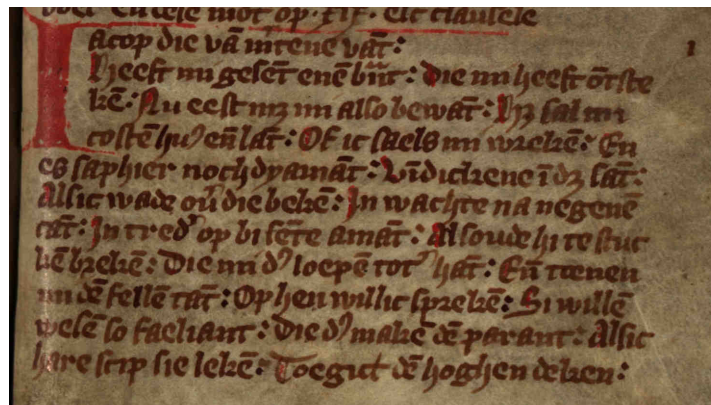 en cele mot op · xix · elc clausele
Iacop die vā mtene vāt:
Heeft mi geseт̄ enē bāt: Die mi heeft ōtste
kē: Nu eest mʒ mi also bewāt: Hʒ sal mi
costē huꝰ eñ lāt: Of ic saels mi wrekē: En
es saphier noch dyamāt: Vīdickene ī dʒ sāt:
Alsic wade ouꝰ die bekē: In wachte na negenē
cāt: In tredꝰ op bi sēte amāt: Al soude hi te stuc
kē brekē: Die mi dꝰ loepē totꝰ hāt: Eñ toenen
mi dē fellē tāt: Op hen willic sprekē: Si willē
wesē so faeliant: Die dꝰ makē dē parant: Alsic
hare scip sie lekē: Toegict dē hoghen deken: